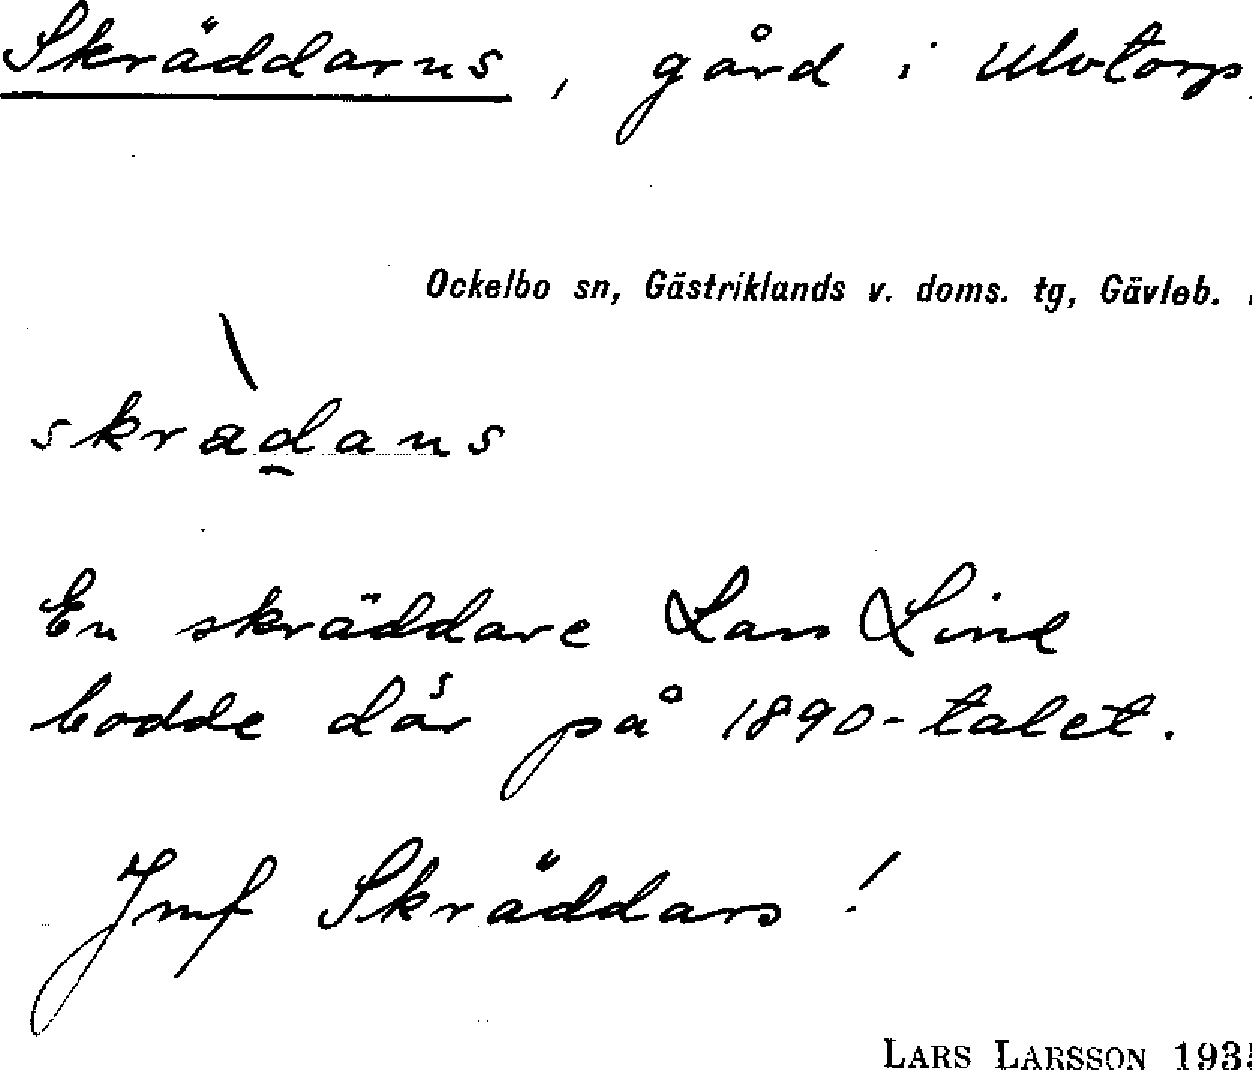 Skräddarns, gård i Ulvtorp.
Ockelbo sn, Gästriklands v. doms. tg, Gävleb.
skradans
En skräddare Lars Lind
bodde där på 1890-talet.
Jmf Skräddars!
LARS LARSSON 1935